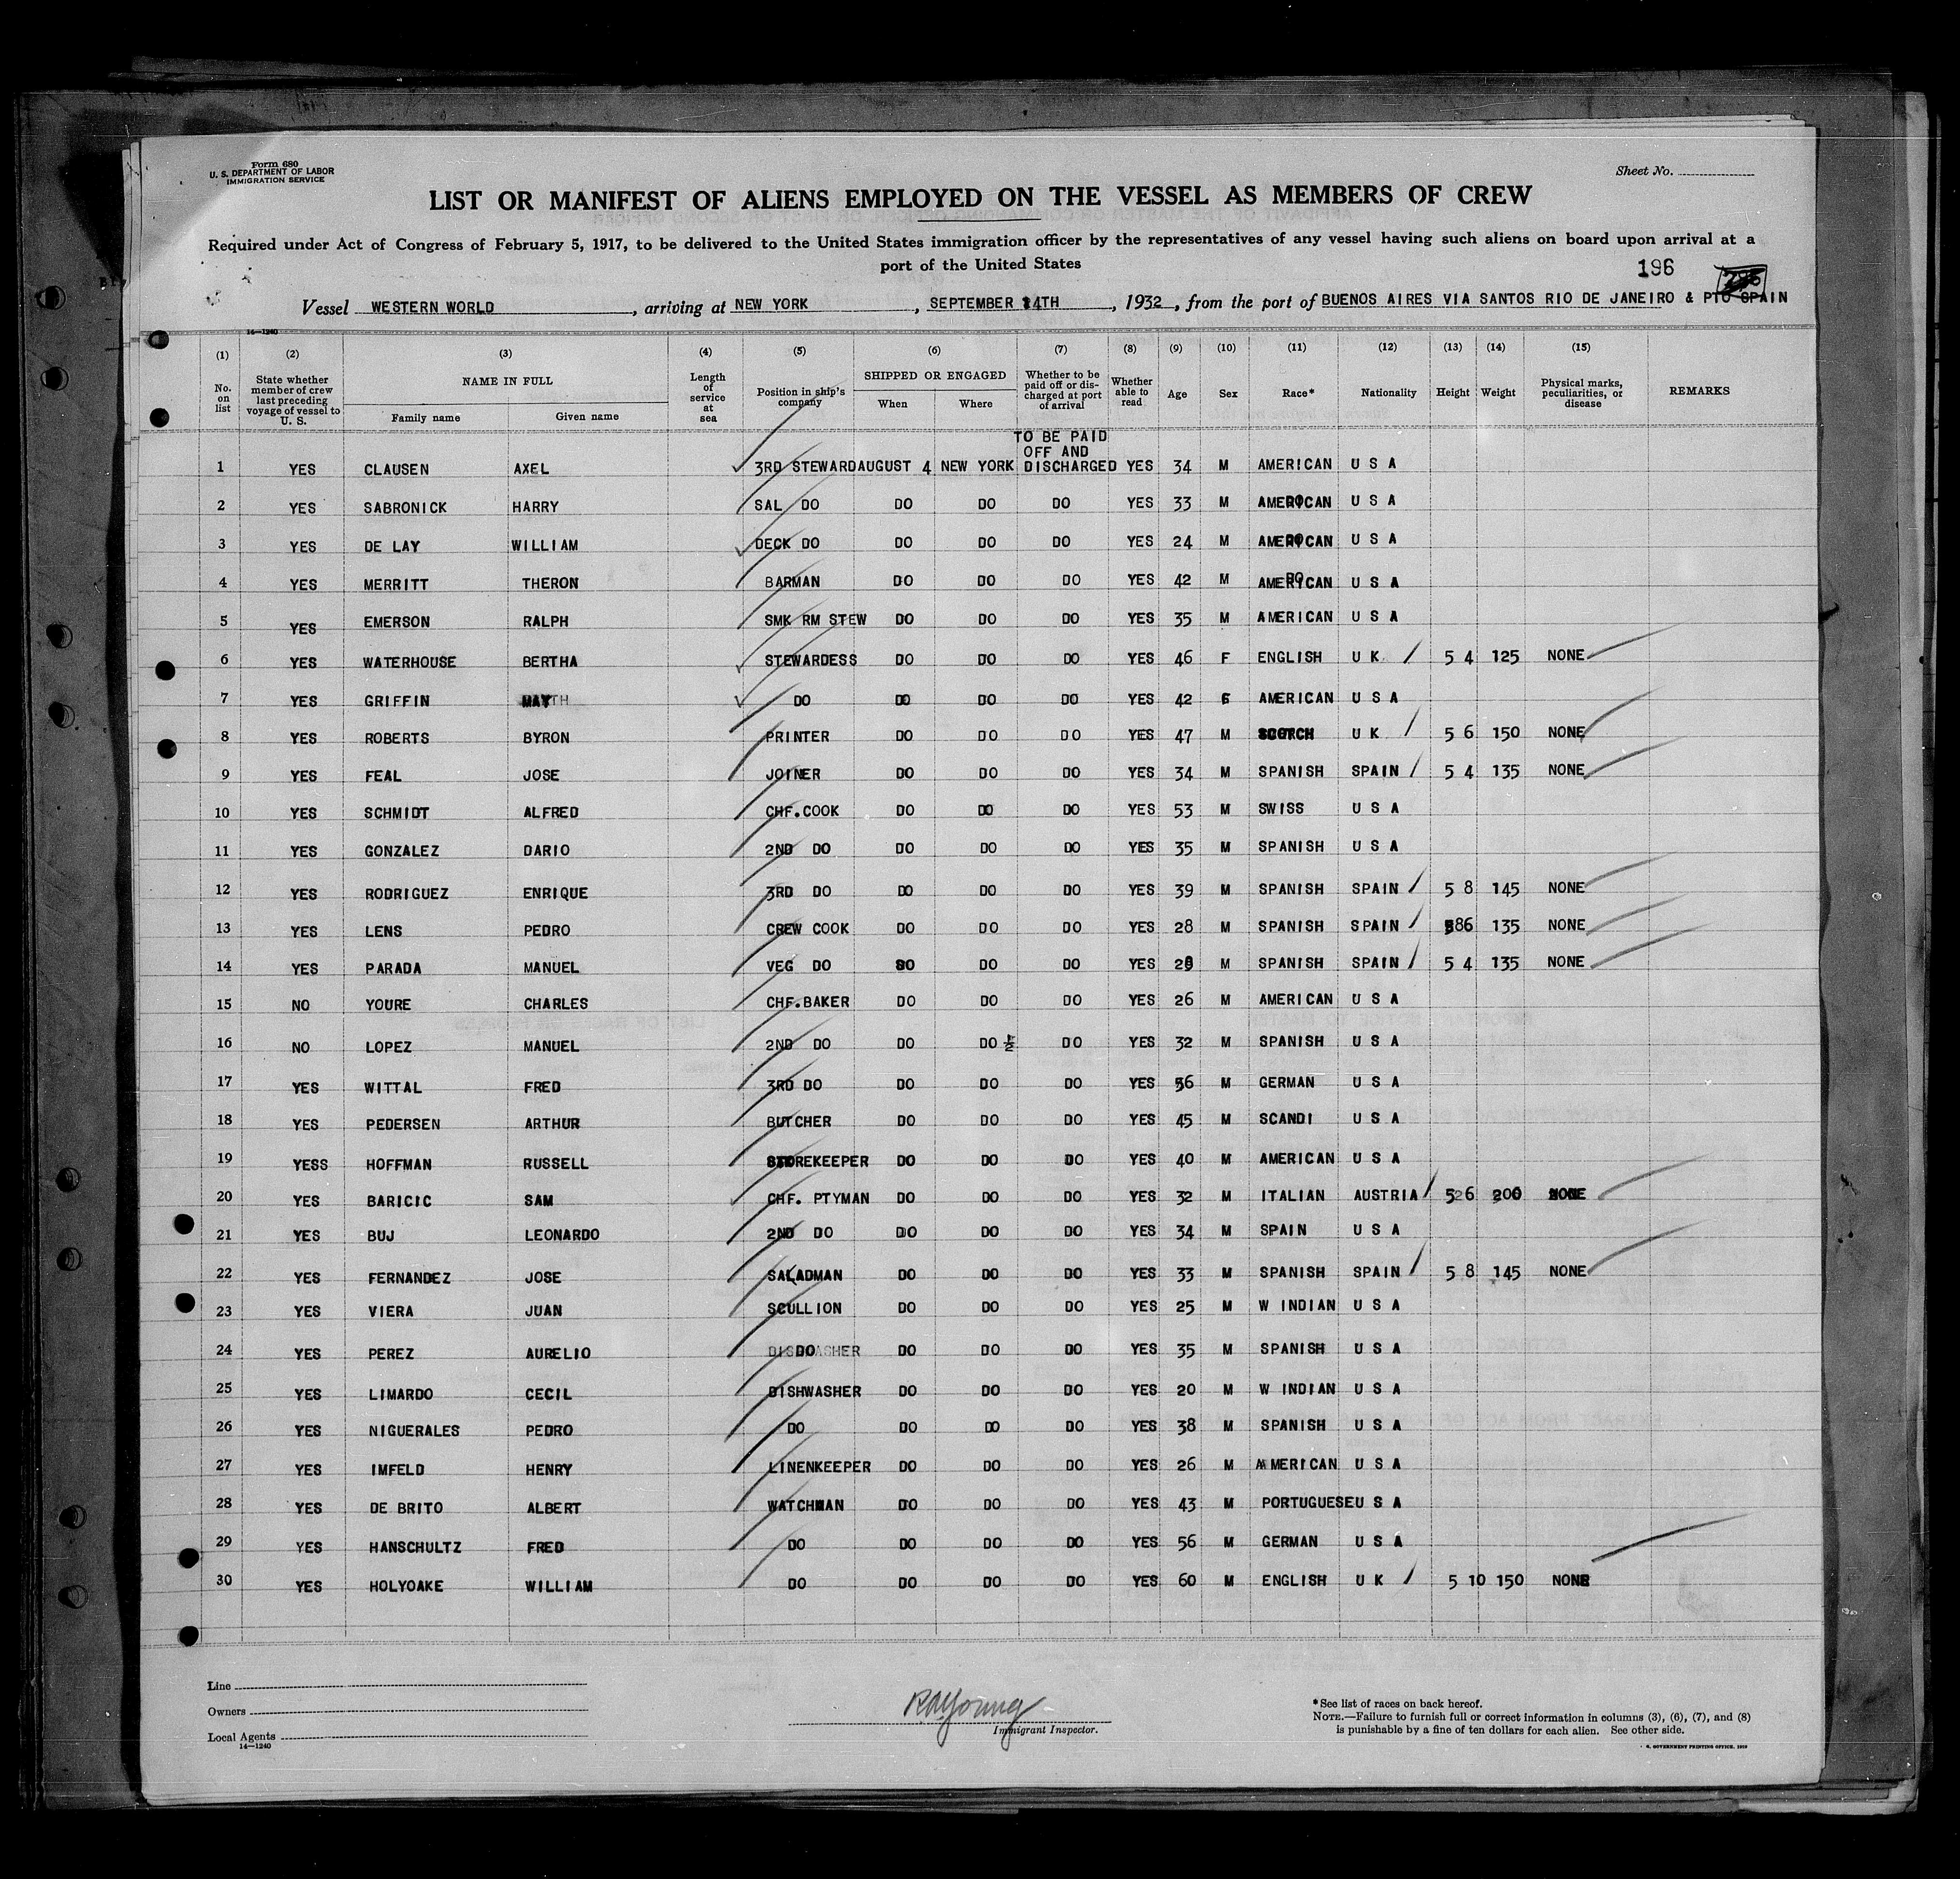 Form 680
U. S. DEPARTMENT OF LABOR
IMMIGRATION SERVICE
Sheet No.
LIST OR MANIFEST OF ALIENS EMPLOYED ON THE VESSEL AS MEMBERS OF CREW
Required under Act of Congress of February 5, 1917, to be delivered to the United States immigration officer by the representatives of any vessel having such aliens on board upon arrival at a
port of the United States
196
Vessel WESTERN WORLD, arriving at NEW YORK, SEPTEMBER 14TH, 1932, from the port of BUENOS AIRES VIA SANTOS RIO DE JANEIRO & PTO SPAIN
14—1240
(1) (2) (3) (4) (5) (6) (7) (8) (9) (10) (11) (12) (13) (14) (15)
No. on list State whether member of crew last preceding voyage of vessel to U. S. NAME IN FULL Family name Given name Length of service at sea Position in ship's company SHIPPED OR ENGAGED When Where Whether to be paid off or discharged at port of arrival Whether able to read Age Sex Race* Nationality Height Weight Physical marks, peculiarities, or disease REMARKS
TO BE PAID
OFF AND
1 YES CLAUSEN AXEL 3RD STEWARD AUGUST 4 NEW YORK DISCHARGED YES 34 M AMERICAN U S A
2 YES SABRONICK HARRY SAL DO DO DO DO YES 33 M AMERICAN U S A
3 YES DE LAY WILLIAM DECK DO DO DO DO YES 24 M AMERICAN U S A
4 YES MERRITT THERON BARMAN DO DO DO YES 42 M AMERICAN U S A
5 YES EMERSON RALPH SMK RM STEW DO DO DO YES 35 M AMERICAN U S A
6 YES WATERHOUSE BERTHA STEWARDESS DO DO DO YES 46 F ENGLISH U K 5 4 125 NONE
7 YES GRIFFIN MAY DO DO DO DO YES 42 F AMERICAN U S A
8 YES ROBERTS BYRON PRINTER DO DO DO YES 47 M SCOTCH U K 5 6 150 NONE
9 YES FEAL JOSE JOINER DO DO DO YES 34 M SPANISH SPAIN 5 4 135 NONE
10 YES SCHMIDT ALFRED CHF.COOK DO DO DO YES 53 M SWISS U S A
11 YES GONZALEZ DARIO 2ND DO DO DO DO YES 35 M SPANISH U S A
12 YES RODRIGUEZ ENRIQUE 3RD DO DO DO DO YES 39 M SPANISH SPAIN 5 8 145 NONE
13 YES LENS PEDRO CREW COOK DO DO DO YES 28 M SPANISH SPAIN 586 135 NONE
14 YES PARADA MANUEL VEG DO DO DO DO YES 28 M SPANISH SPAIN 5 4 135 NONE
15 NO YOURE CHARLES CHF.BAKER DO DO DO YES 26 M AMERICAN U S A
16 NO LOPEZ MANUEL 2ND DO DO DO DO YES 32 M SPANISH U S A
17 YES WITTAL FRED 3RD DO DO DO DO YES 56 M GERMAN U S A
18 YES PEDERSEN ARTHUR BUTCHER DO DO DO YES 45 M SCANDI U S A
19 YESS HOFFMAN RUSSELL STOREKEEPER DO DO DO YES 40 M AMERICAN U S A
20 YES BARICIC SAM CHF. PTYMAN DO DO DO YES 32 M ITALIAN AUSTRIA 526 200 NONE
21 YES BUJ LEONARDO 2ND DO DO DO DO YES 34 M SPAIN U S A
22 YES FERNANDEZ JOSE SALADMAN DO DO DO YES 33 M SPANISH SPAIN 5 8 145 NONE
23 YES VIERA JUAN SCULLION DO DO DO YES 25 M W INDIAN U S A
24 YES PEREZ AURELIO DO DO DO DO YES 35 M SPANISH U S A
25 YES LIMARDO CECIL DISHWASHER DO DO DO YES 20 M W INDIAN U S A
26 YES NIGUERALES PEDRO DO DO DO DO YES 38 M SPANISH U S A
27 YES IMFELD HENRY LINENKEEPER DO DO DO YES 26 M AMERICAN U S A
28 YES DE BRITO ALBERT WATCHMAN DO DO DO YES 43 M PORTUGUESE U S A
29 YES HANSCHULTZ FRED DO DO DO DO YES 56 M GERMAN U S A
30 YES HOLYOAKE WILLIAM DO DO DO DO YES 60 M ENGLISH U K 5 10 150 NONE
Line
Owners
Local Agents
14—1240
RAYoung
Immigrant Inspector.
*See list of races on back hereof.
NOTE.—Failure to furnish full or correct information in columns (3), (6), (7), and (8)
is punishable by a fine of ten dollars for each alien. See other side.